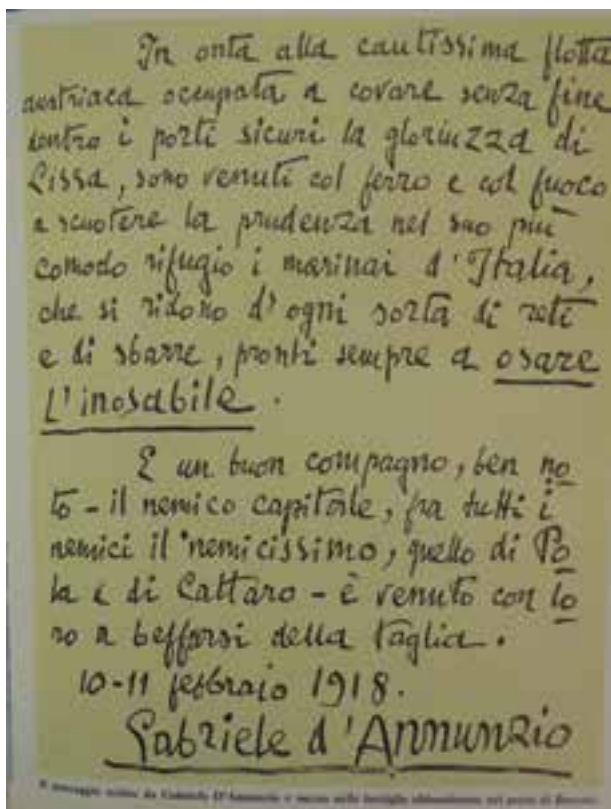 In onta alla cautissima flotta
austriaca occupata a covare senza fine
dentro i porti sicuri la gloriuzza di
Lissa, sono venuti col ferro e col fuoco
a scuotere la prudenza nel suo più
comodo rifugio i marinai d'Italia,
che si ridono d'ogni sorta di reti
e di sbarre, pronti sempre a osare
l'inosabile.
E un buon compagno, ben no
to - il nemico capitale, fra tutti i
nemici il nemicissimo, quello di Po
la e di Cattaro - è venuto con lo
ro a beffarsi della taglia.
10-11 febbraio 1918.
Gabriele d'Annunzio
messaggio scritto da Gabriele D'Annunzio e nelle bottiglie abbandonate nel porto di